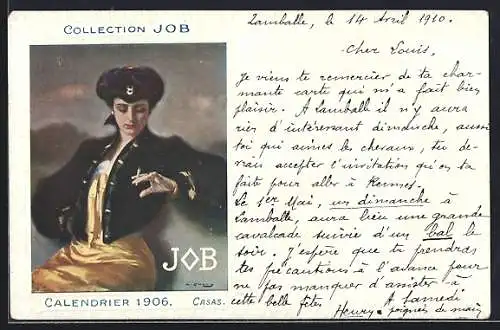 COLLECTION JOB
JOB
CALENDRIER 1906.
CASAS.
Lamballe, le 14 Avril 1910.
Cher Louis,
Je viens te remercier de ta char-
mante carte qui m'a fait bien
plaisir. A Lamball il n'y aura
rien d'intéressant dimanche, aussi
toi qui aimes les chevaux, tu de-
vrais accepter l'invitation qu'on t'a
faite pour aller à Rennes.
Le 1er Mai, un dimanche à
Lamballe, aura lieu une grande
cavalcade suivie d'un bal le
soir. J'espère que tu prendras
tes précautions à l'avance pour
ne pas manquer d'assister à
cette belle fête. A samedi
Henry. poignée de main